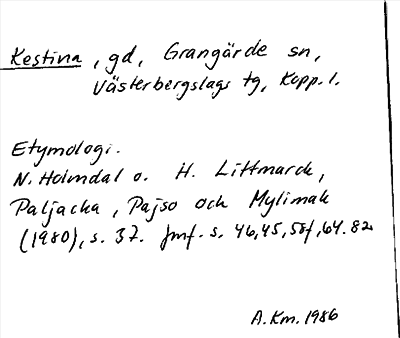 Kestina, gd, Grangärde sn,
Västerbergslags tg, Kopp. l.
Etymologi.
N. Holmdal o. H. Littmarck,
Paljacka, Pajso och Mylimak
(1980), s. 37. Jmf. s. 46,45,58f,64.82
A.Km. 1986